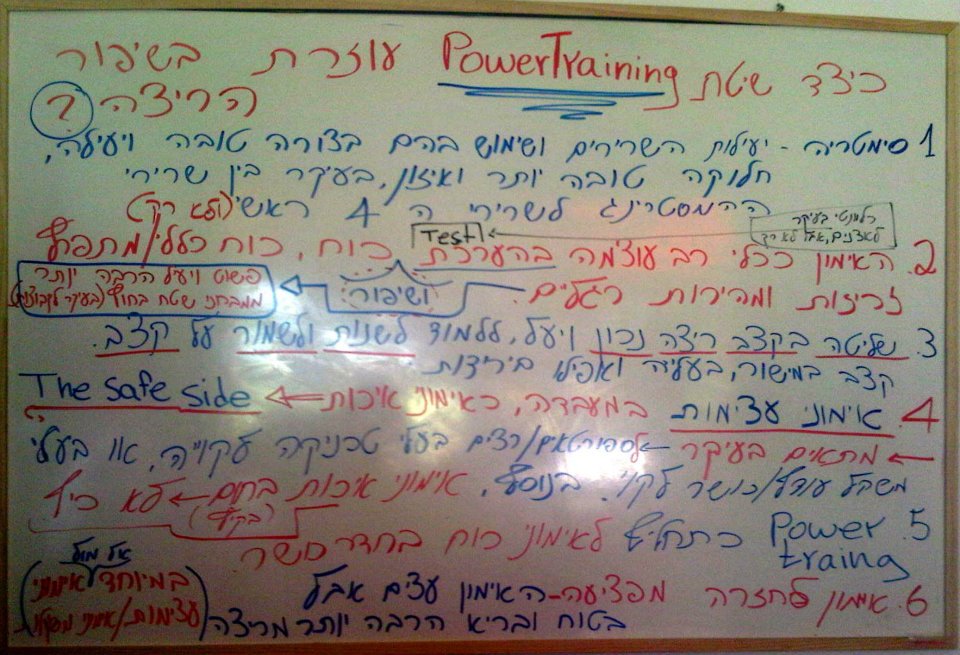 כיצד שיטת PowerTraining עוזרת בשיפור
הריצה?
1 סימטריה - יעילות השרירים ושימוש בהם בצורה טובה ויעילה,
חלוקה טובה יותר ואיזון, בעיקר בין שרירי
ההמסטרינג לשרירי ה 4 ראשי (ולא רק)
רלוונטי בעיקר
לאצנים, אבל לא רק
Test
2. האימון ככלי רב עוצמה בהערכת כוח, כוח כללי/מתפרץ
ושיפור
זריזות ומהירות רגליים
פשוט ויעיל הרבה יותר
ממבחני שטח בחוץ (בעיקר לקבוצות)
3. שליטה בקצב ריצה נכון ויעיל, ללמוד לשנות ולשמור על קצב.
קצב במישור, בעליה ואפילו בירידות
4. אימוני עצימות במעבדה, כאימוני איכות ← The safe side
← מתאים בעיקר ← לספורטאים/רצים בעלי טכניקה לקויה, או בעלי
משקל עודף/כושר לקוי. בנוסף, אימוני איכות בחום ← לא כיף
(בקיץ)
5. Power traing כתחליף לאימוני כוח בחדר כושר
6. אימון לחזרה מפציעה - האימון עצים אבל
בטוח ובריא הרבה יותר מריצה
אל מול
(במיוחד לאימוני
עצימות/